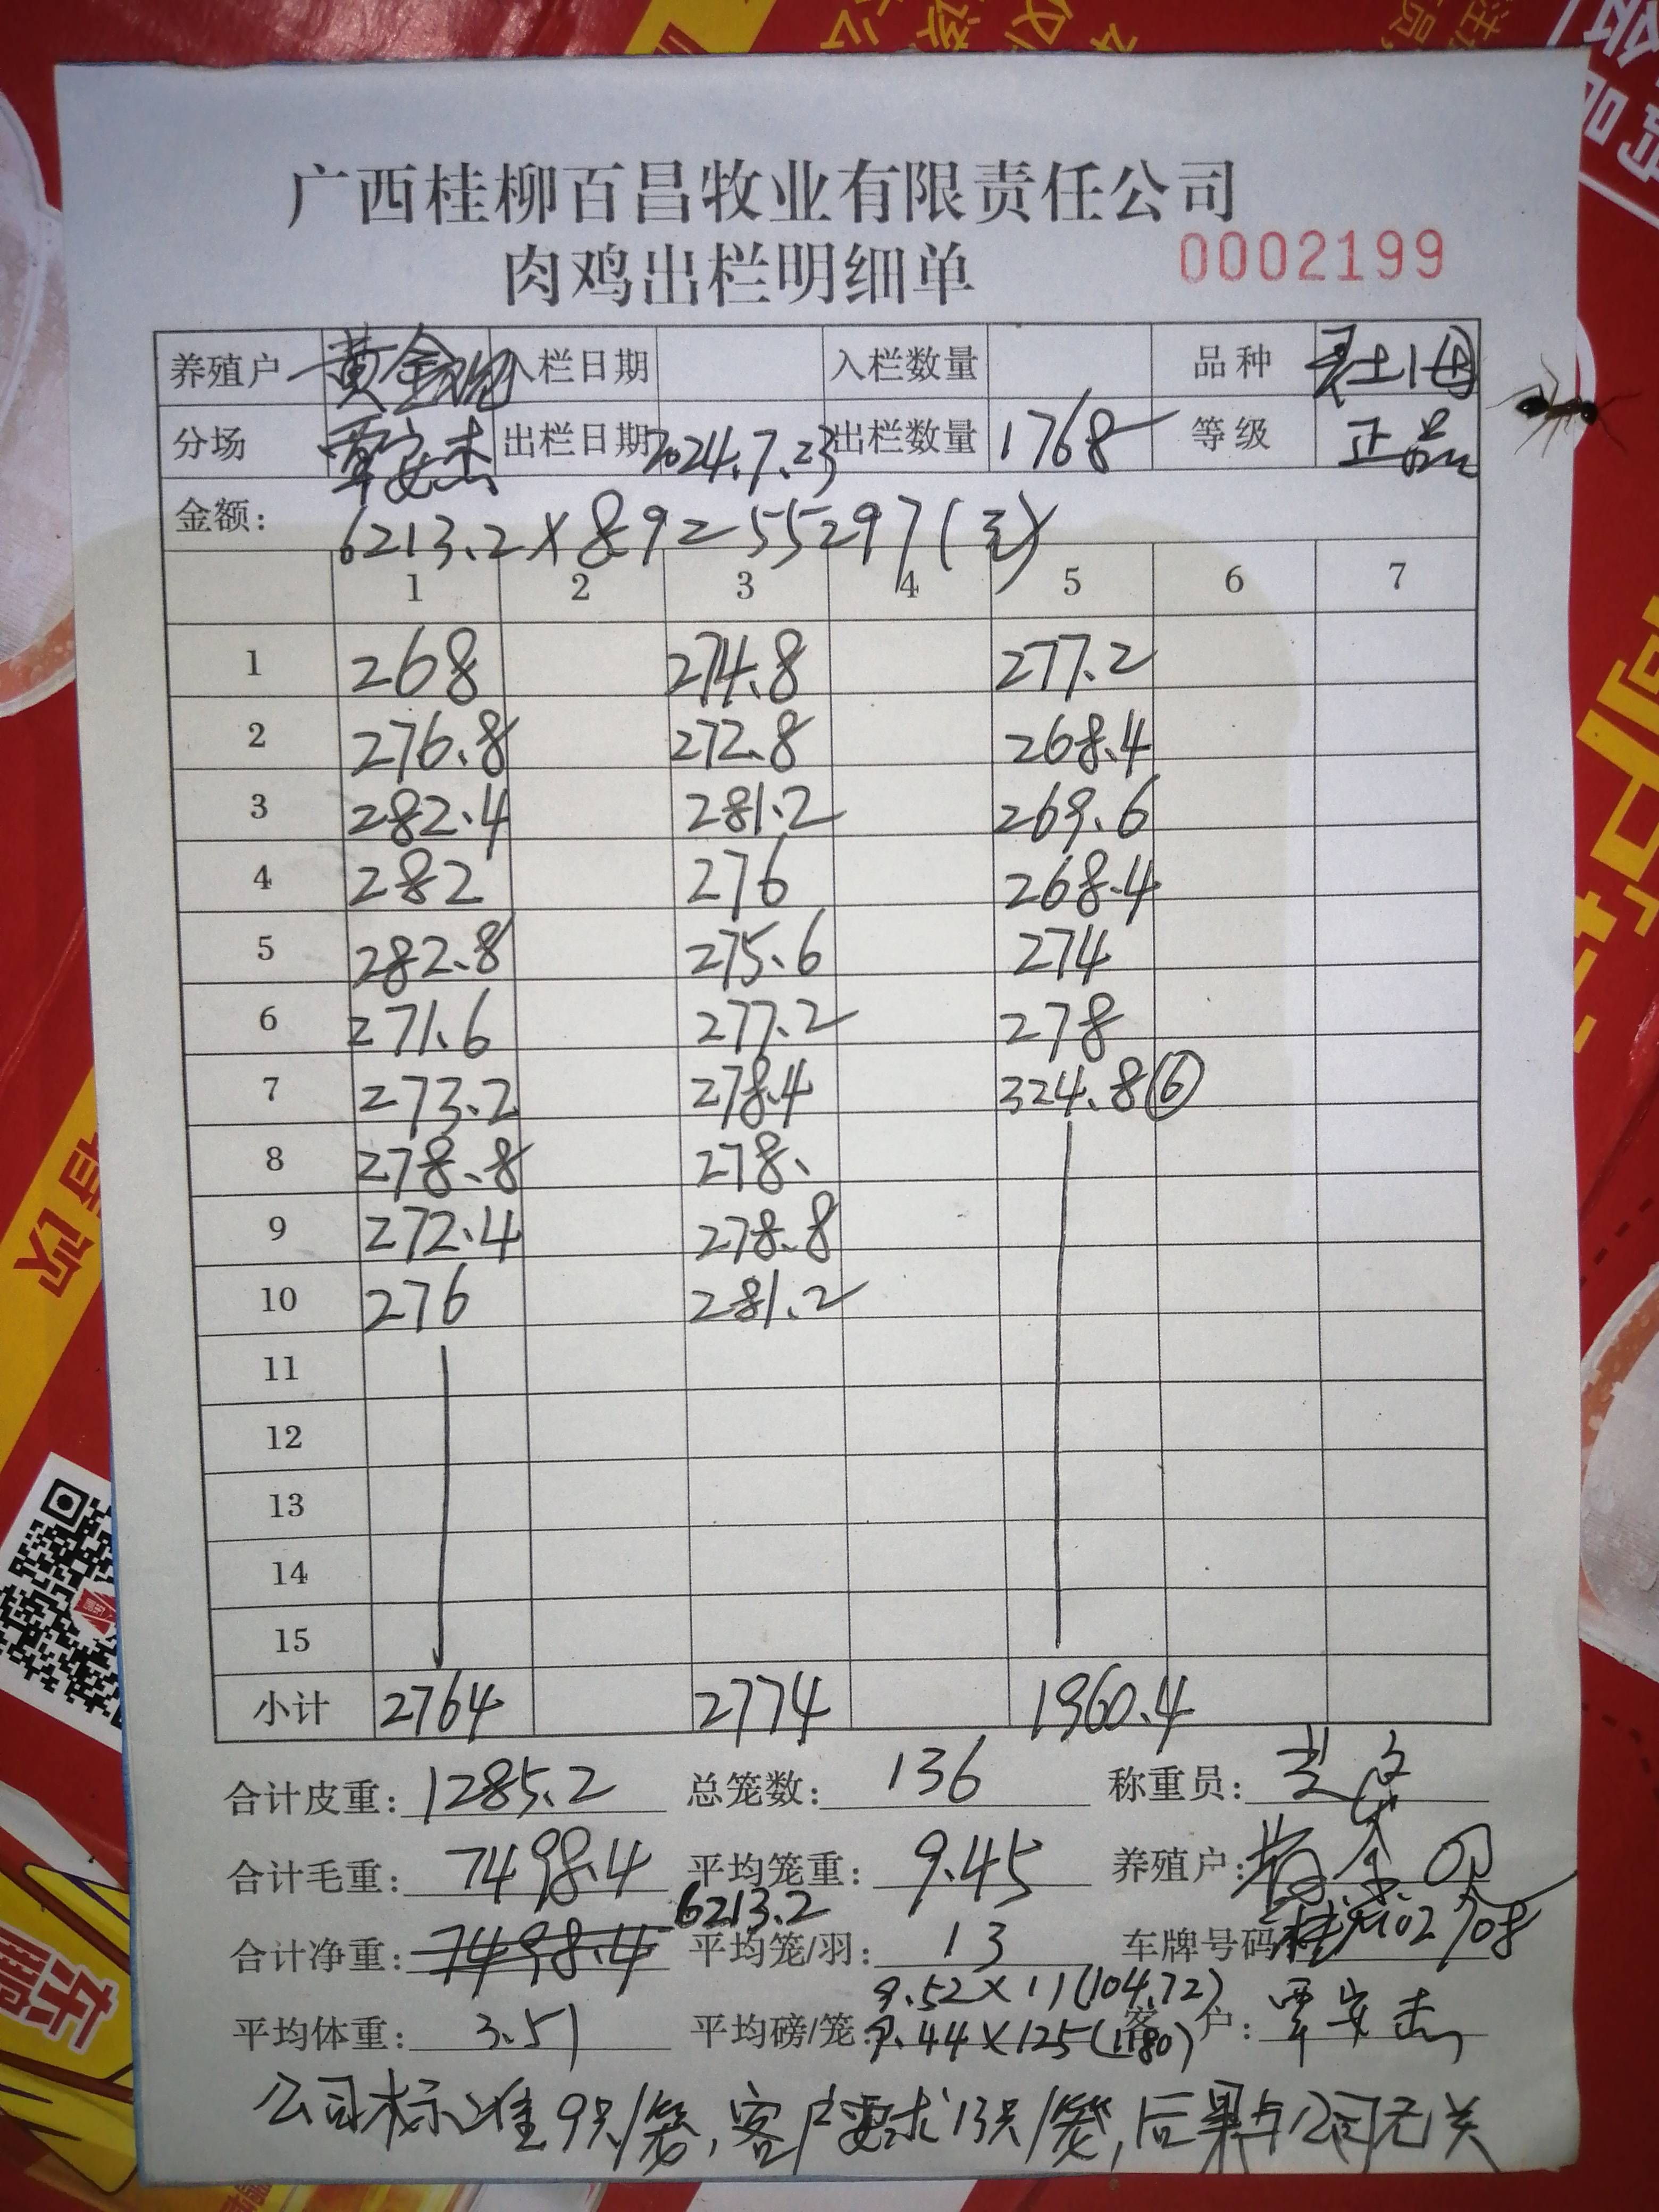 广西桂柳百昌牧业有限责任公司
肉鸡出栏明细单 0002199
养殖户 黄金 入栏日期 入栏数量 品种
分场 覃安杰 出栏日期 2024.7.23 出栏数量 1768 等级 正品
金额: 6213.2×8.9=55297(元)
1 2 3 4 5 6 7
1 268 274.8 277.2
2 276.8 272.8 268.4
3 282.4 281.2 269.6
4 282 276 268.4
5 282.8 275.6 274
6 271.6 277.2 278
7 273.2 278.4 324.8 ⑥
8 278.8 278.
9 272.4 278.8
10 276 281.2
11
12
13
14
15
小计 2764 2774 1960.4
合计皮重: 1285.2 总笼数: 136 称重员:
合计毛重: 7498.4 平均笼重: 9.45 养殖户:
6213.2
合计净重: 7498.4 平均笼/羽: 13 车牌号码
9.52×11(104.72)
平均体重: 3.51 平均磅/笼: 9.44×125(1180) 客户: 覃安杰
公司标准9只/笼,客户要求13只/笼,后果与公司无关